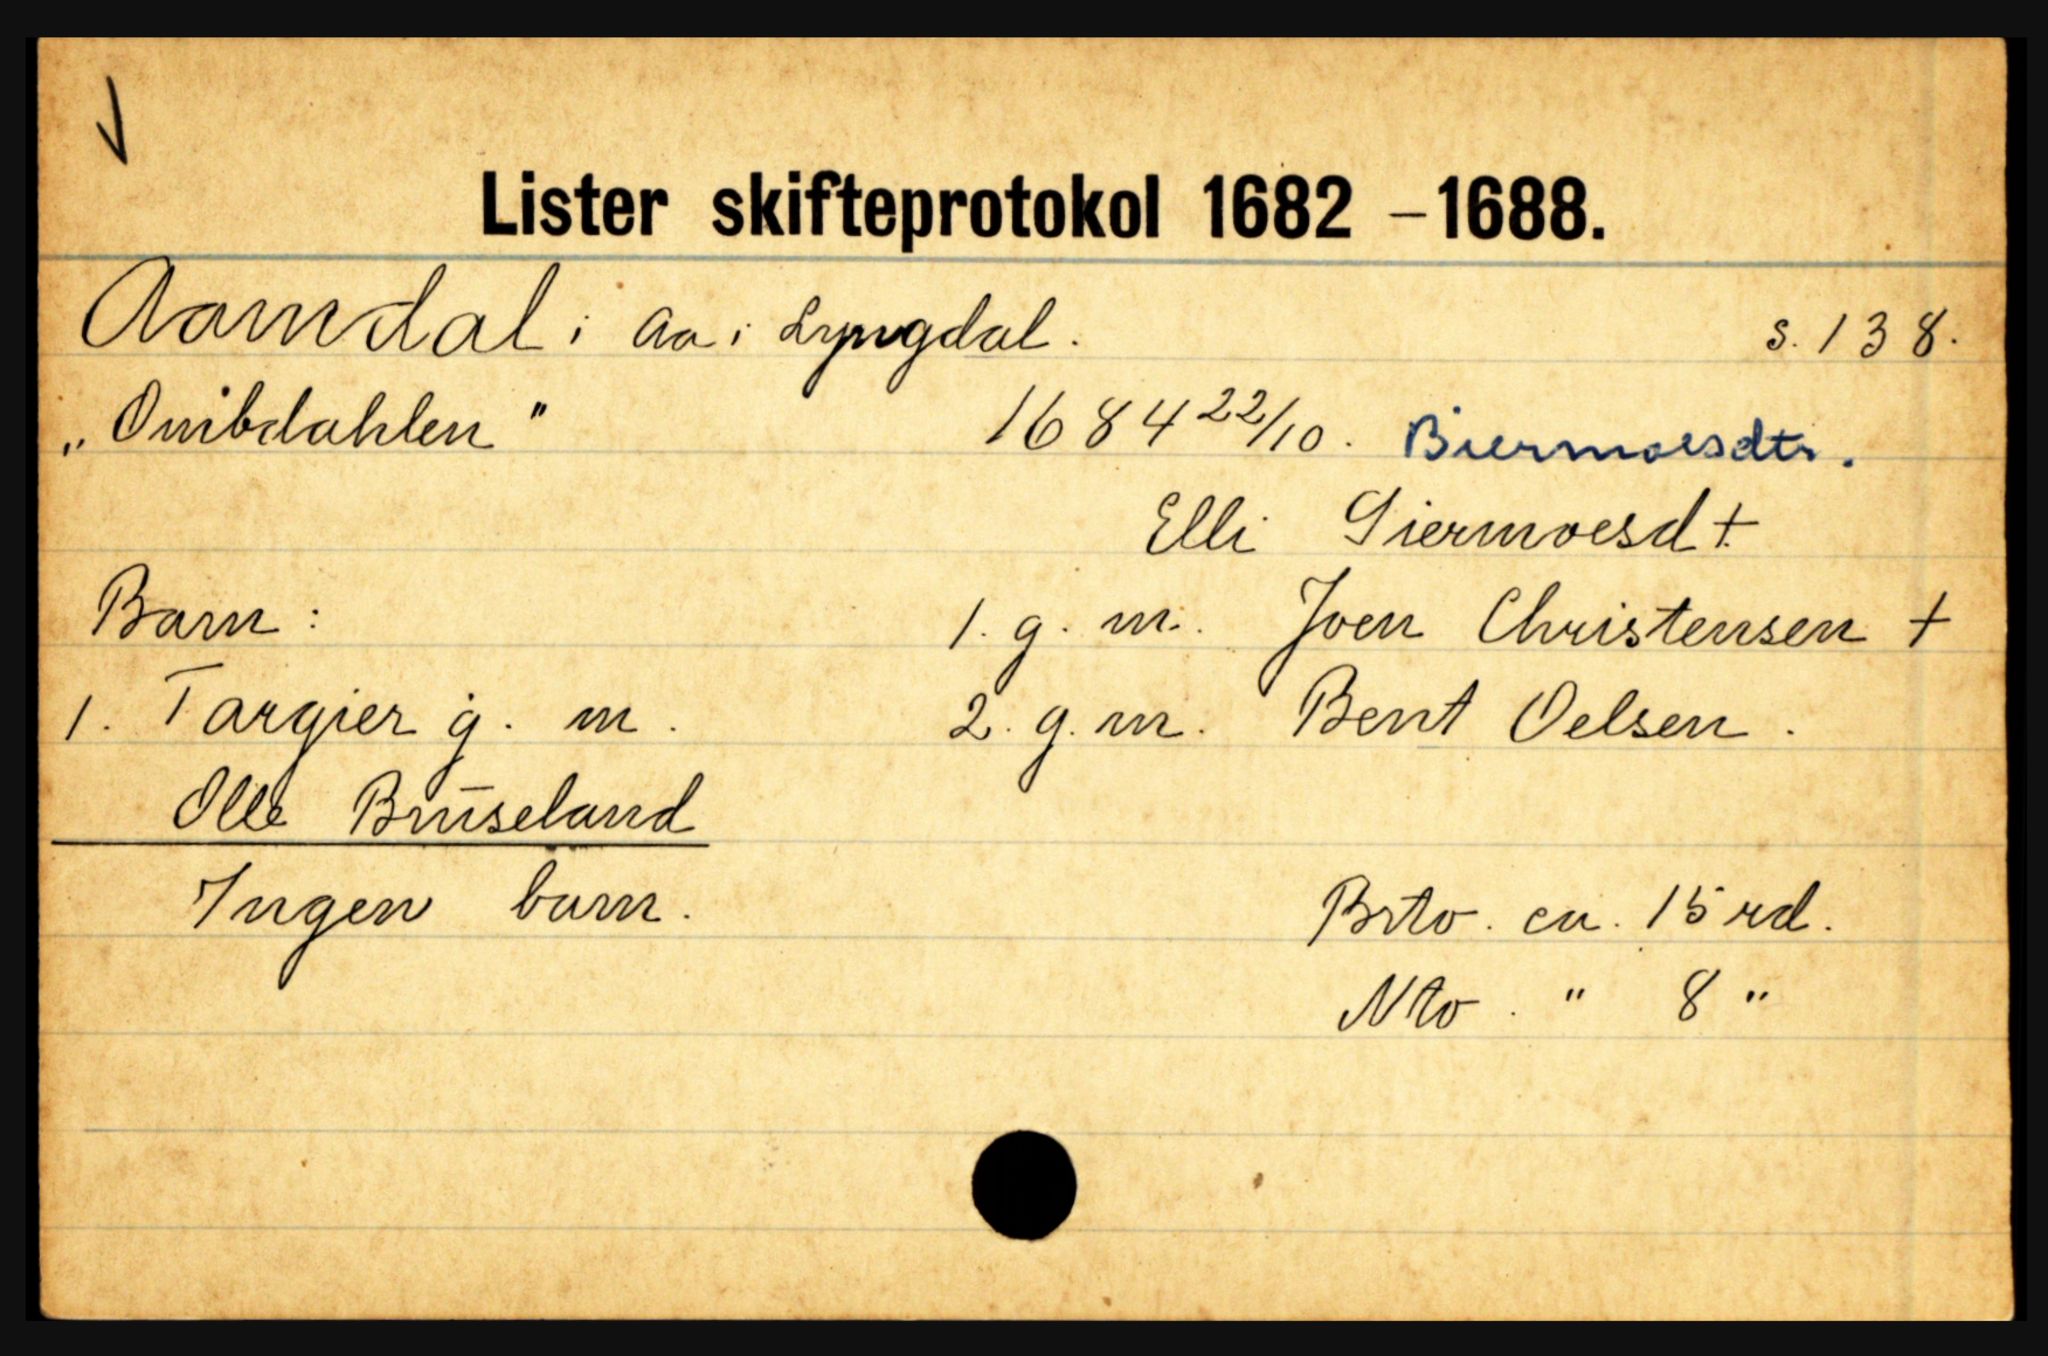 Lister skifteprotokol 1682 – 1688.
Aamdal i Aa i Lyngdal. s. 138.
„Omibdahlen" 1684 22/10. Biermoesdtr.
Elli Siermoesd +
Barn: 1. g. m. Joen Christensen +
1. Targier g. m. 2. g. m. Bent Oelsen.
Olle Bruseland
Ingen barn. Brto. ca. 15 rd.
Nto. " 8 "